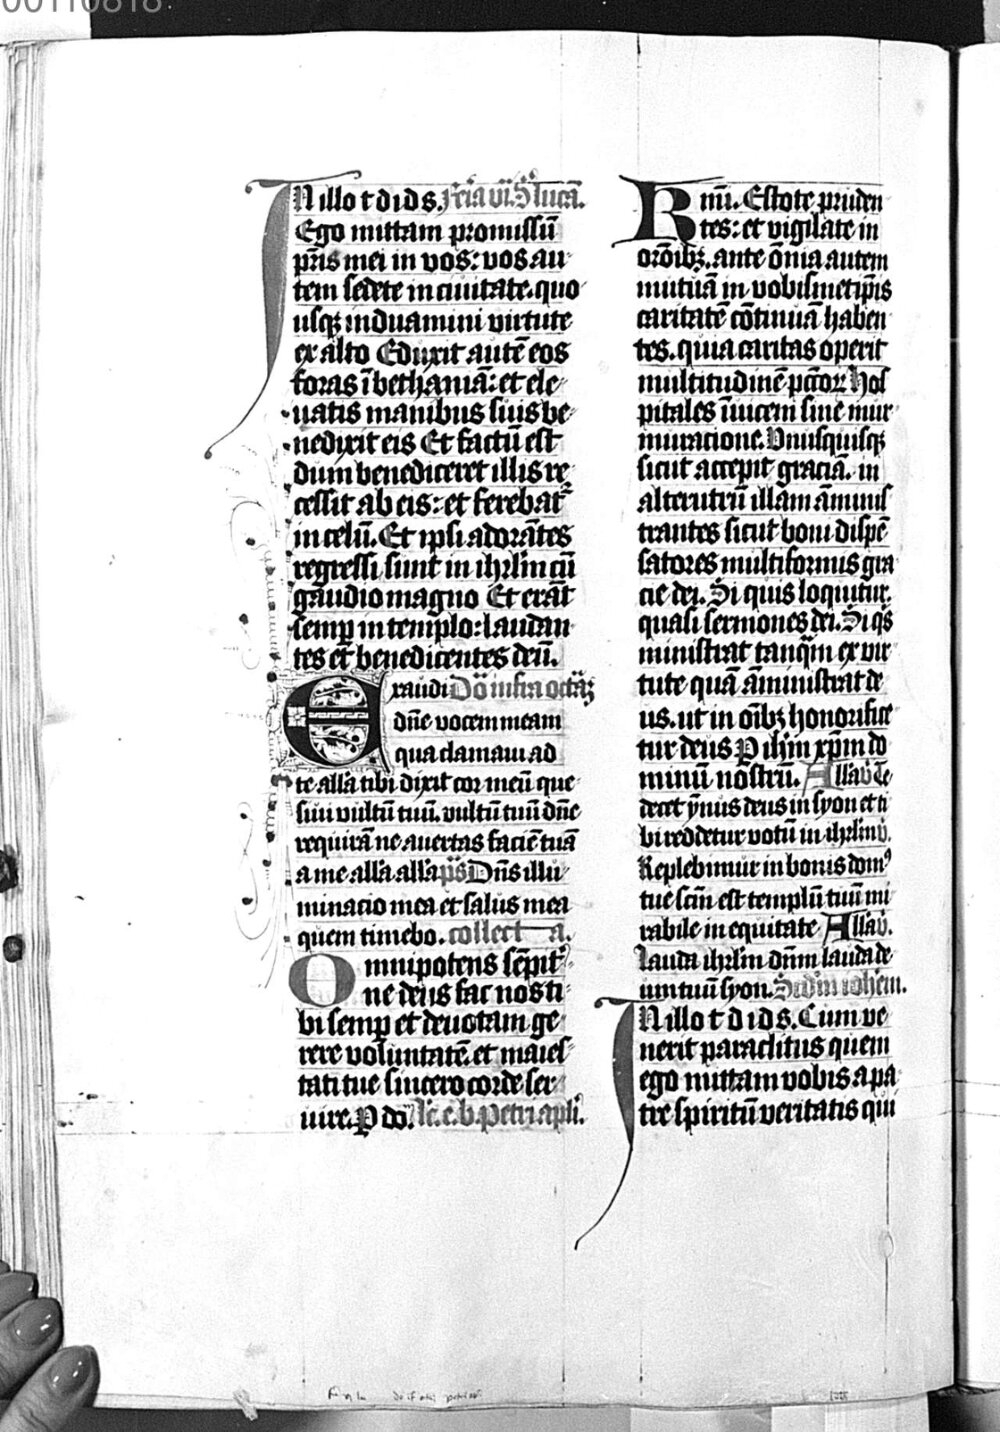 00110818
In illo t d ids. Fcīa vi. S. lucā.
Ego mittam promissū
pr̄is mei in vos: vos au-
tem sedete in ciuitate. quo-
usqꝫ induamini virtute
ex alto Eduxit autē eos
foras ī bethaniā: et ele-
uatis manibus suis be-
nedixit eis Et factū est
dum benediceret illis re-
cessit ab eis: et ferebat᷑
in celū. Et ip̄i adorātes
regressi sunt in ihrl̄m cū
gaudio magno Et erāt
semꝑ in templo: laudan-
tes et benedicentes deū.
Exaudi Dō infra octā
dn̄e vocem meam
qua clamaui ad
te all̄a tibi dixit cor meū que-
siui vultū tuū. vultū tuū dn̄e
requirā ne auertas faciē tuā
a me all̄a all̄a p̄s Dn̄s illu-
minacio mea et salus mea
quem timebo. collecta.
Omnipotens sēpit̉-
ne deus fac nos ti-
bi semꝑ et deuotam ge-
rere voluntatē. et maies-
tati tue sincero corde ser-
uire. P do. l̄c. e. b. Petri apl̄i.
Krm̄i. Estote pruden-
tes: et vigilate in
orōibꝫ. ante ōnia autem
mutuā in vobismetip̄is
caritatē cōtinuā haben-
tes. quia caritas operit
multitudinē pccoꝝ Hos-
pitales īuicem sine mur-
muracione. Vnusquisqꝫ
sicut accepit graciā. in
alterutrū illam āminis-
trantes sicut boni dispē-
satores multiformis gra-
cie dei. Si quis loquitur.
quasi sermones dei. Si qͥs
ministrat tanqͣm ex vir-
tute quā āministrat de-
us. ut in oībꝫ honorifice-
tur deus P ihm̄ xp̄m do-
minū nostrū. All̄a v̄ Te
decet ymnus deus in syon et ti-
bi reddetur votū in ihrl̄m v̄.
Replebimur in bonis dom⁹
tue scm̄ est templū tuū mi-
rabile in equitate All̄a v̄.
Lauda ihrl̄m dn̄m lauda de-
um tuū syon. Scd̄m ioh̄em.
In illo t d ids. Cum ve-
nerit paraclitus quem
ego mittam vobis a pa-
tre spiritū veritatis qui